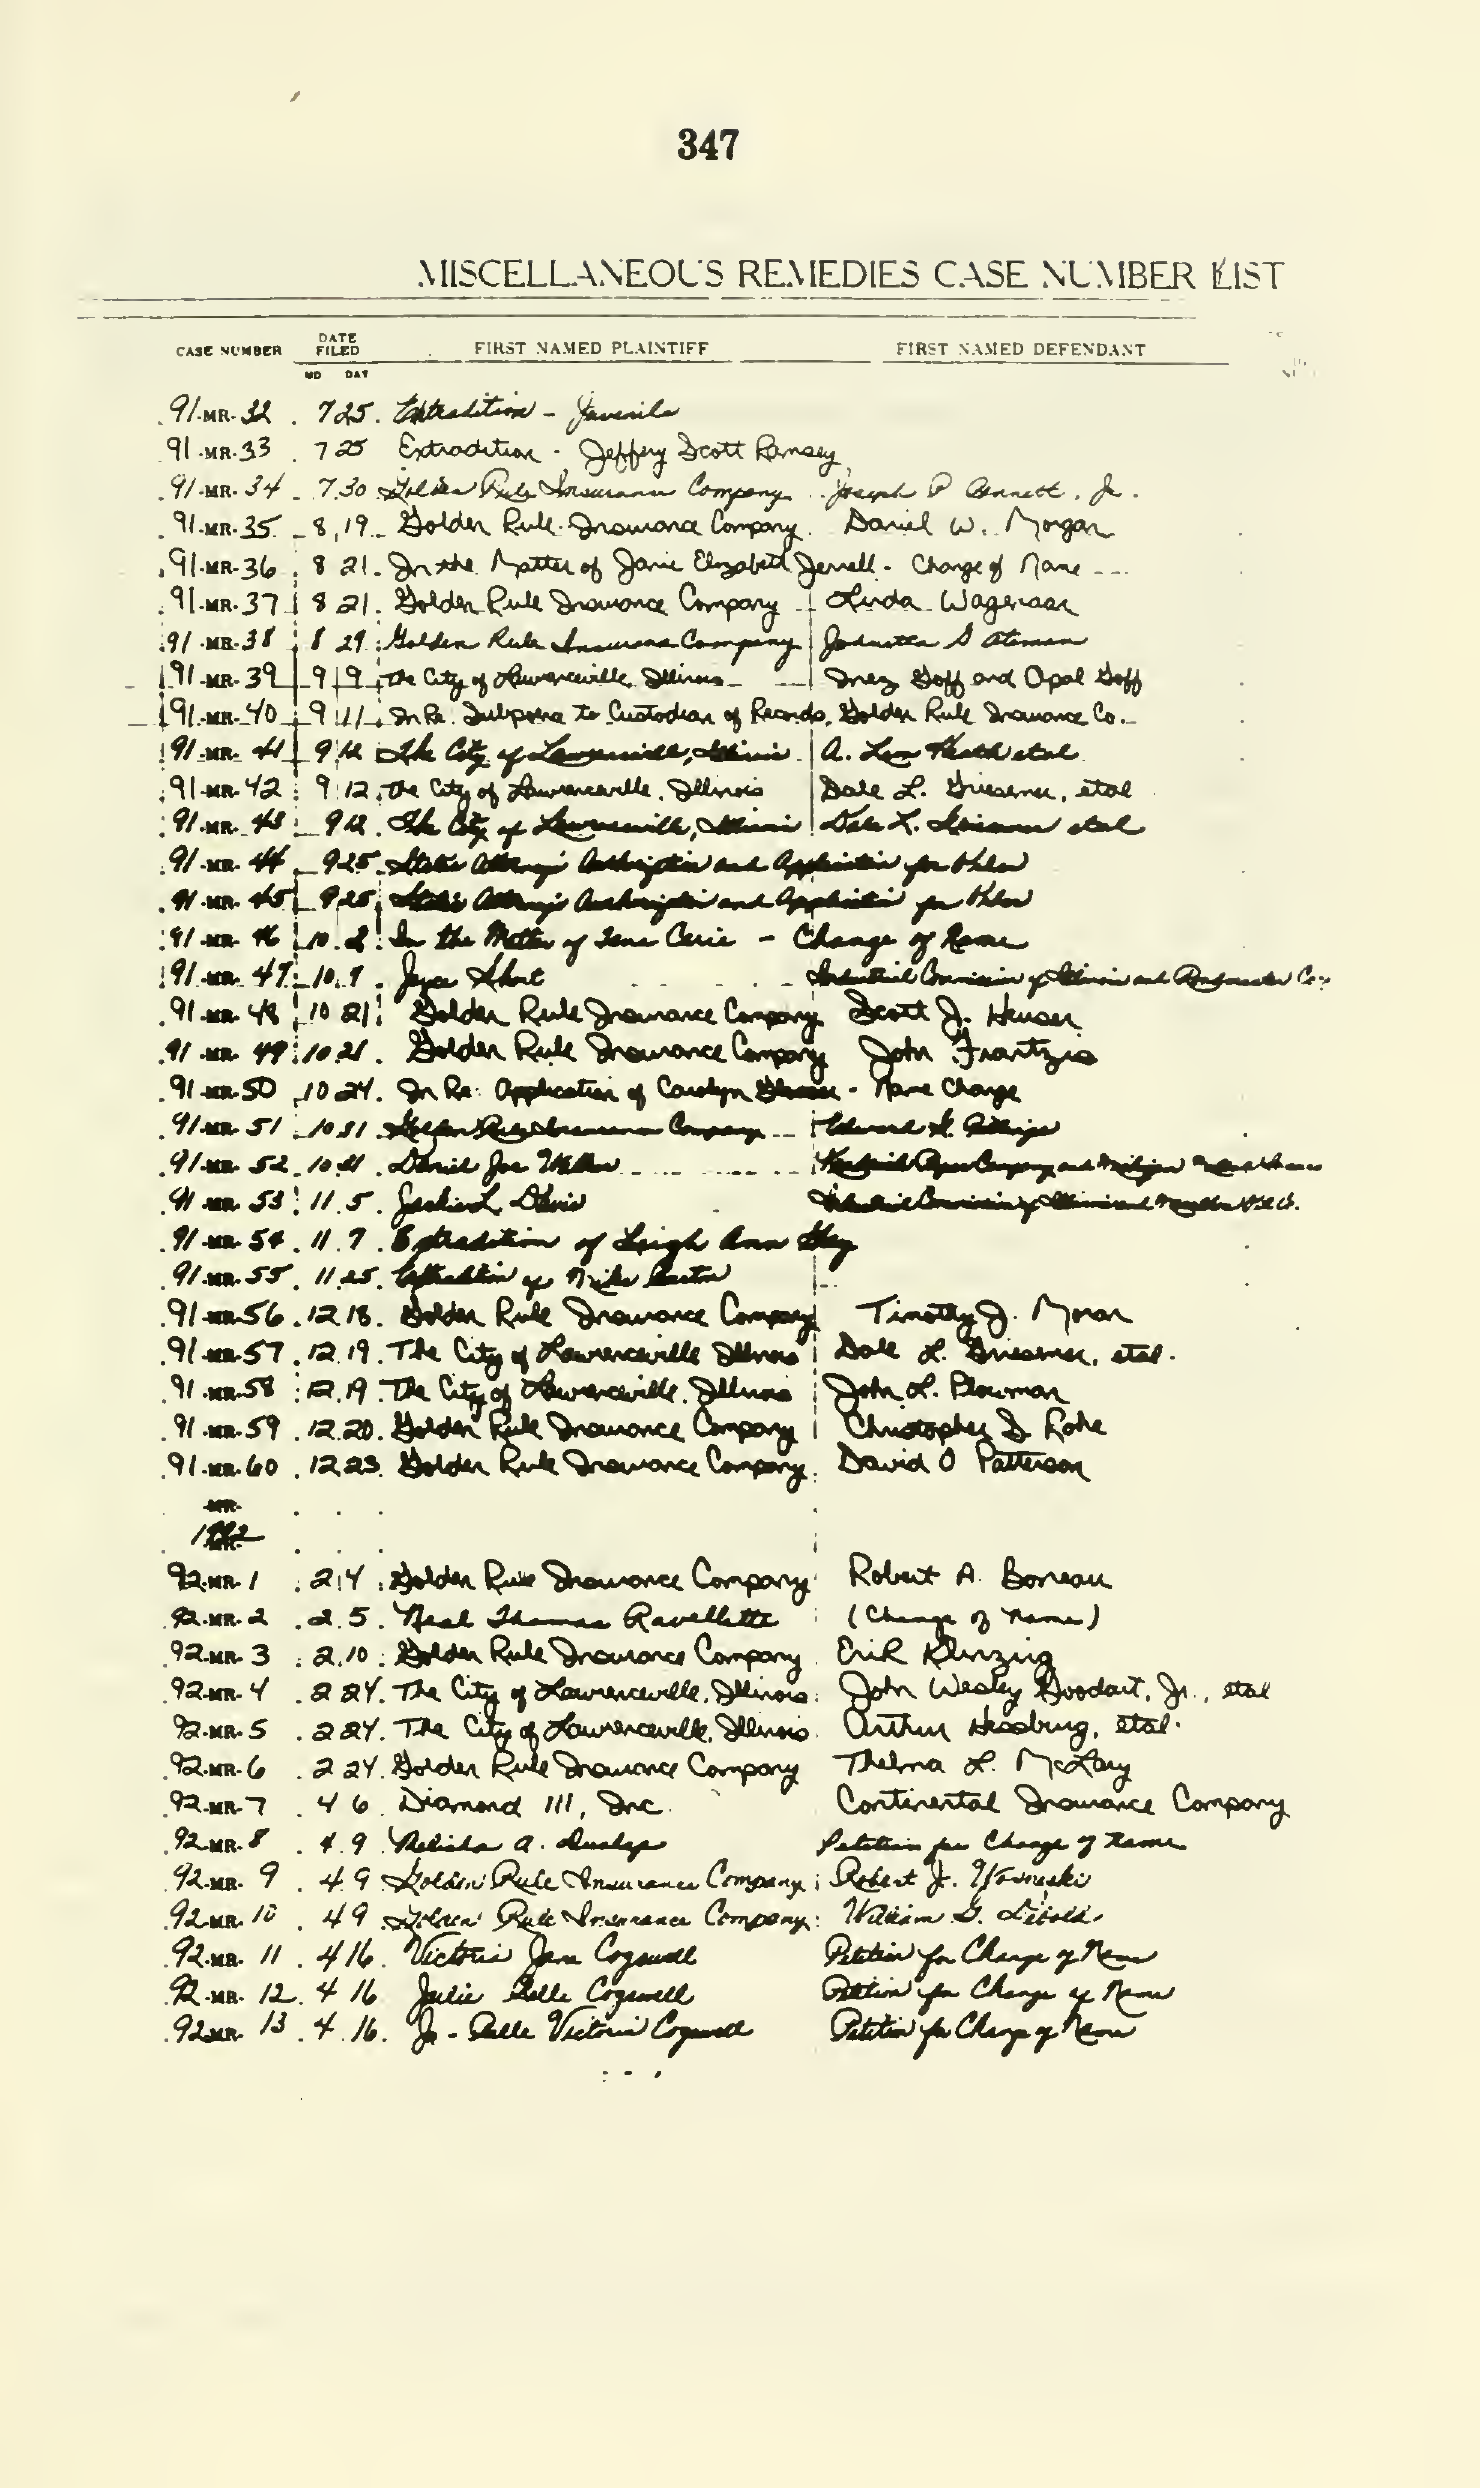 347
MISCELLANEOUS REMEDIES CASE NUMBER LIST
CASE NUMBER DATE FILED FIRST NAMED PLAINTIFF FIRST NAMED DEFENDANT
MO DAY
91-MR-32 7 25 Extradition - Juvenile
91-MR-33 7 25 Extradition - Jeffery Scott Ramsey
91-MR-34 7 30 Golden Rule Insurance Company Joseph P Bennett, Jr.
91-MR-35 8 19 Golden Rule Insurance Company Daniel W. Morgan
91-MR-36 8 21 In the Matter of Janie Elizabeth Jerrell - Change of Name
91-MR-37 8 21 Golden Rule Insurance Company Linda Wagenaar
91-MR-38 8 29 Golden Rule Insurance Company Johnetta S Ateman
91-MR-39 9 9 The City of Lawrenceville, Illinois Inez Goff and Opal Goff
91-MR-40 9 11 In Re: Subpoena to Custodian of Records, Golden Rule Insurance Co.
91-MR-41 9 12 The City of Lawrenceville, Illinois A. Leon Heath etal
91-MR-42 9 12 The City of Lawrenceville, Illinois Dale L. Griesemer, etal
91-MR-43 9 12 The City of Lawrenceville, Illinois Dale L. Griesemer etal
91-MR-44 9 25 States Attorney's Authorization and Application for
91-MR-45 9 25 States Attorney's Authorization and Application for
91-MR-46 10 2 In the Matter of Cerie - Change of Name
91-MR-47 10 9 Joyce Short Industrial Commission of Illinois and
91-MR-48 10 21 Golden Rule Insurance Company Scott J. Heuser
91-MR-49 10 21 Golden Rule Insurance Company John Frantzis
91-MR-50 10 24 In Re: Application of Carolyn - Name Change
91-MR-51 10 31 Golden Rule Insurance Company Edward
91-MR-52 10 31 Daniel Joe
91-MR-53 11 5 L. Davis Industrial Commission of Illinois and
91-MR-54 11 7 Extradition of Leigh Ann
91-MR-55 11 25 Extradition of Mike
91-MR-56 12 18 Golden Rule Insurance Company Timothy J. Moran
91-MR-57 12 19 The City of Lawrenceville Illinois Dale L. Griesemer, etal.
91-MR-58 12 19 The City of Lawrenceville, Illinois John L. Plowman
91-MR-59 12 20 Golden Rule Insurance Company Christopher D. Rohe
91-MR-60 12 23 Golden Rule Insurance Company David O Patterson
MR-
1992
92-MR-1 2 4 Golden Rule Insurance Company Robert A. Boneau
92-MR-2 2 5 Neal Thomas Ravellette (Change of Name)
92-MR-3 2 10 Golden Rule Insurance Company Erik Klinzing
92-MR-4 2 24 The City of Lawrenceville, Illinois John Wesley Goodart, Jr., etal
92-MR-5 2 24 The City of Lawrenceville, Illinois Arthur Hessbrug, etal.
92-MR-6 2 24 Golden Rule Insurance Company Thelma L. McLary
92-MR-7 4 6 Diamond III, Inc. Continental Insurance Company
92-MR-8 4 9 Melisha A. Dunlap Petition for Change of Name
92-MR-9 4 9 Golden Rule Insurance Company Robert J. Woineski
92-MR-10 4 9 Golden Rule Insurance Company William G. Libold
92-MR-11 4 16 Victoria Jane Cogswell Petition for Change of Name
92-MR-12 4 16 Julie Belle Cogswell Petition for Change of Name
92-MR-13 4 16 Jo-Belle Victoria Cogswell Petition for Change of Name